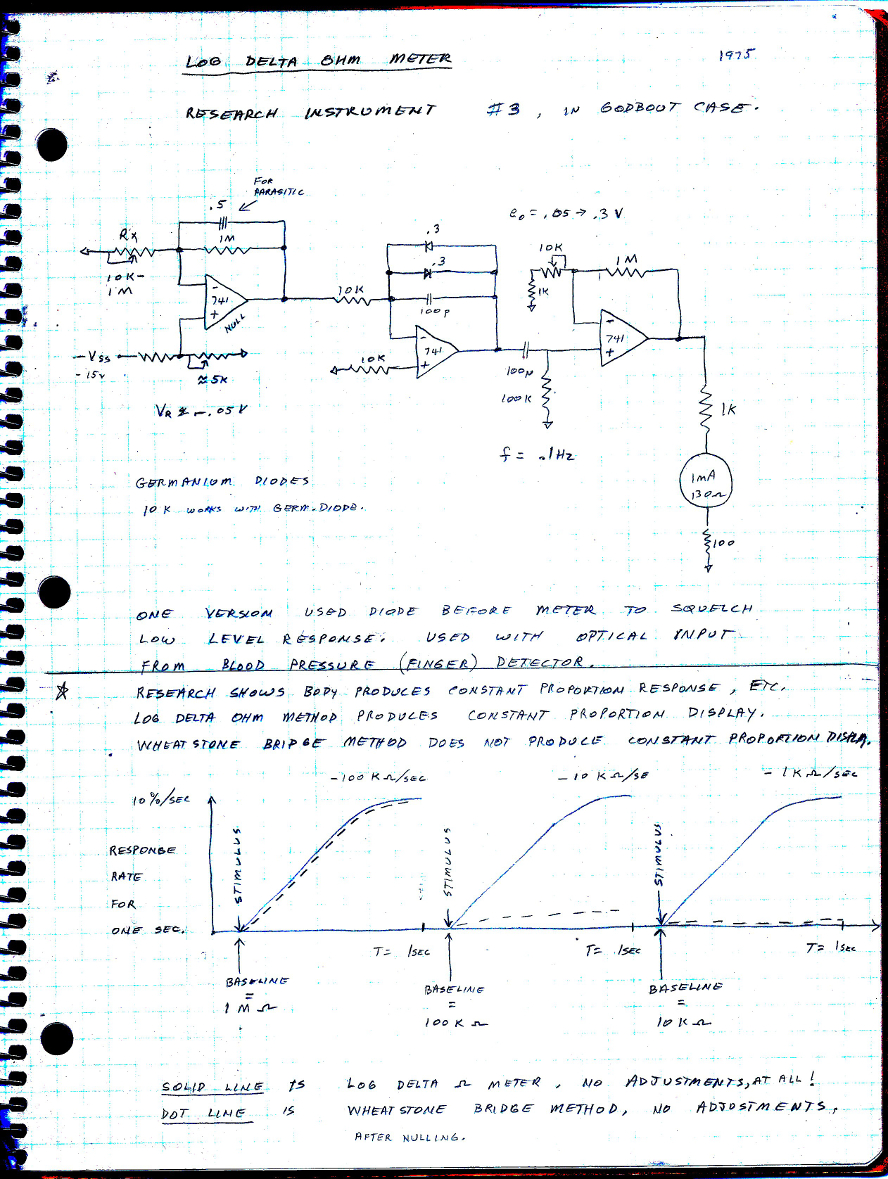 LOG DELTA OHM METER
1975
RESEARCH INSTRUMENT #3, IN GODBOUT CASE.
FOR
PARASITIC
.5
eo = .05 → .3 V
Rx
1M
10K-
1M
741
NULL
-
+
-Vss
-15v
≈ 5K
VR ≈ -.05 V
10K
.3
.3
100p
10K
741
-
+
100µ
100K
f = .1Hz
10K
1K
1M
741
-
+
1K
1MA
130Ω
100
GERMANIUM DIODES
10 K WORKS WITH GERM. DIODE.
ONE VERSION USED DIODE BEFORE METER TO SQUELCH
LOW LEVEL RESPONSE. USED WITH OPTICAL INPUT
FROM BLOOD PRESSURE (FINGER) DETECTOR.
RESEARCH SHOWS BODY PRODUCES CONSTANT PROPORTION RESPONSE, ETC.
LOG DELTA OHM METHOD PRODUCES CONSTANT PROPORTION DISPLAY.
WHEATSTONE BRIDGE METHOD DOES NOT PRODUCE CONSTANT PROPORTION DISPLAY.
-100 K Ω/SEC
-10 K Ω/SE
-1K Ω/SEC
10%/SEC
RESPONSE
RATE
FOR
ONE SEC.
STIMULUS
STIMULUS
STIMULUS
T= 1SEC
T= 1SEC
T= 1SEC
BASELINE
=
1 M Ω
BASELINE
=
100 K Ω
BASELINE
=
10 K Ω
SOLID LINE IS LOG DELTA Ω METER, NO ADJUSTMENTS, AT ALL!
DOT LINE IS WHEATSTONE BRIDGE METHOD, NO ADJUSTMENTS,
AFTER NULLING.